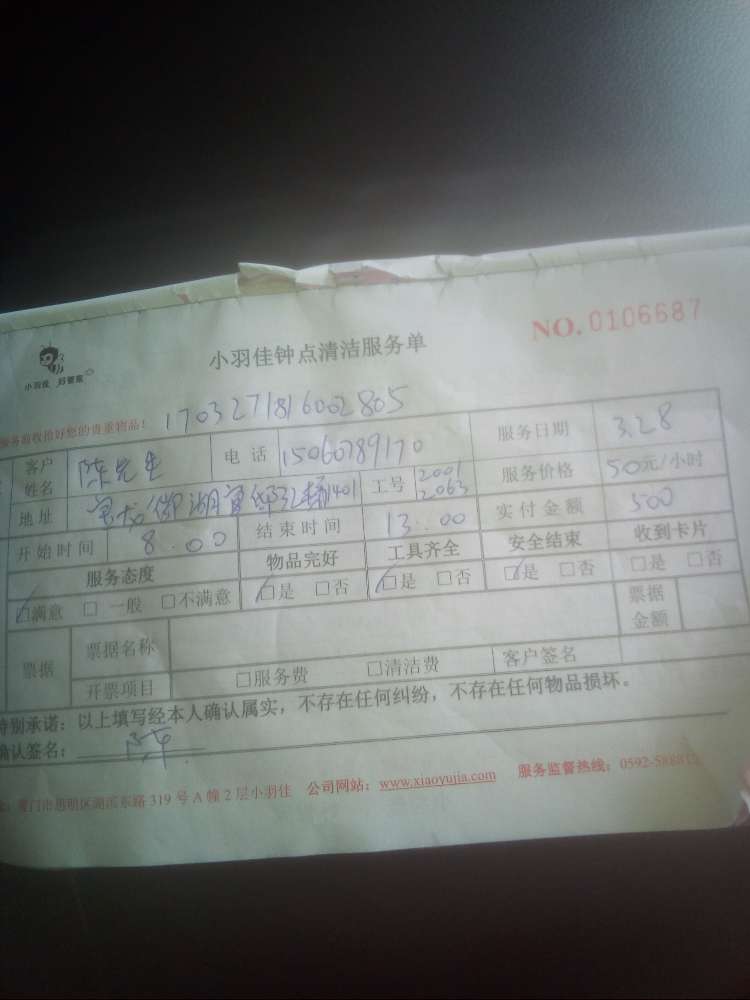 小羽佳钟点清洁服务单
NO. 0106687
小羽佳 好管家
收拾好您的贵重物品! 1703271816002805
客户姓名 陈先生 电话 15060789170 服务日期 3.28
地址 32幢1401 工号 2001 2063 服务价格 50元/小时
开始时间 8:00 结束时间 13:00 实付金额 500
服务态度 物品完好 工具齐全 安全结束 收到卡片
□满意 □一般 □不满意 □是 □否 □是 □否 □是 □否 □是 □否
票据 票据名称 票据金额
开票项目 □服务费 □清洁费 客户签名
特别承诺：以上填写经本人确认属实，不存在任何纠纷，不存在任何物品损坏。
确认签名： 陈
厦门市思明区湖滨东路319号A幢2层小羽佳 公司网站：www.xiaoyujia.com 服务监督热线：0592-